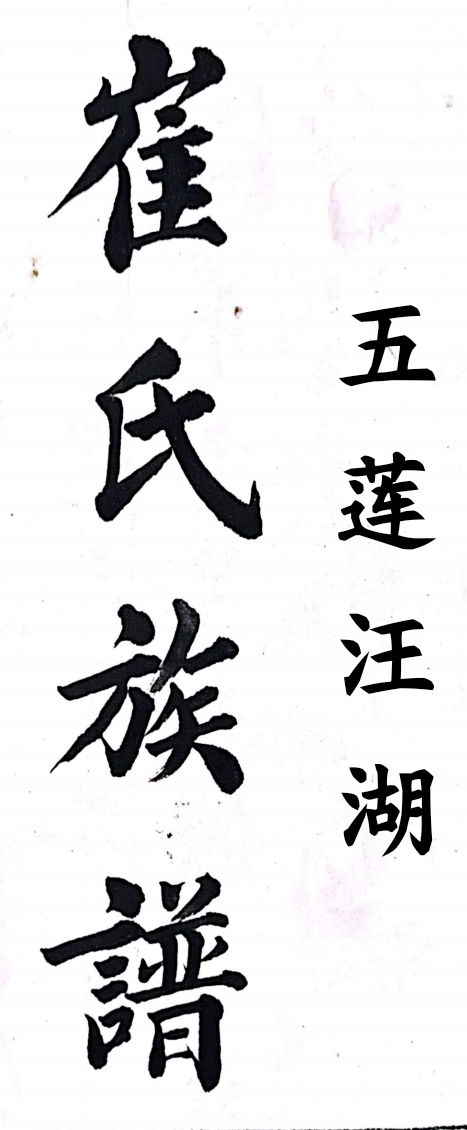 五莲汪湖
崔氏族譜